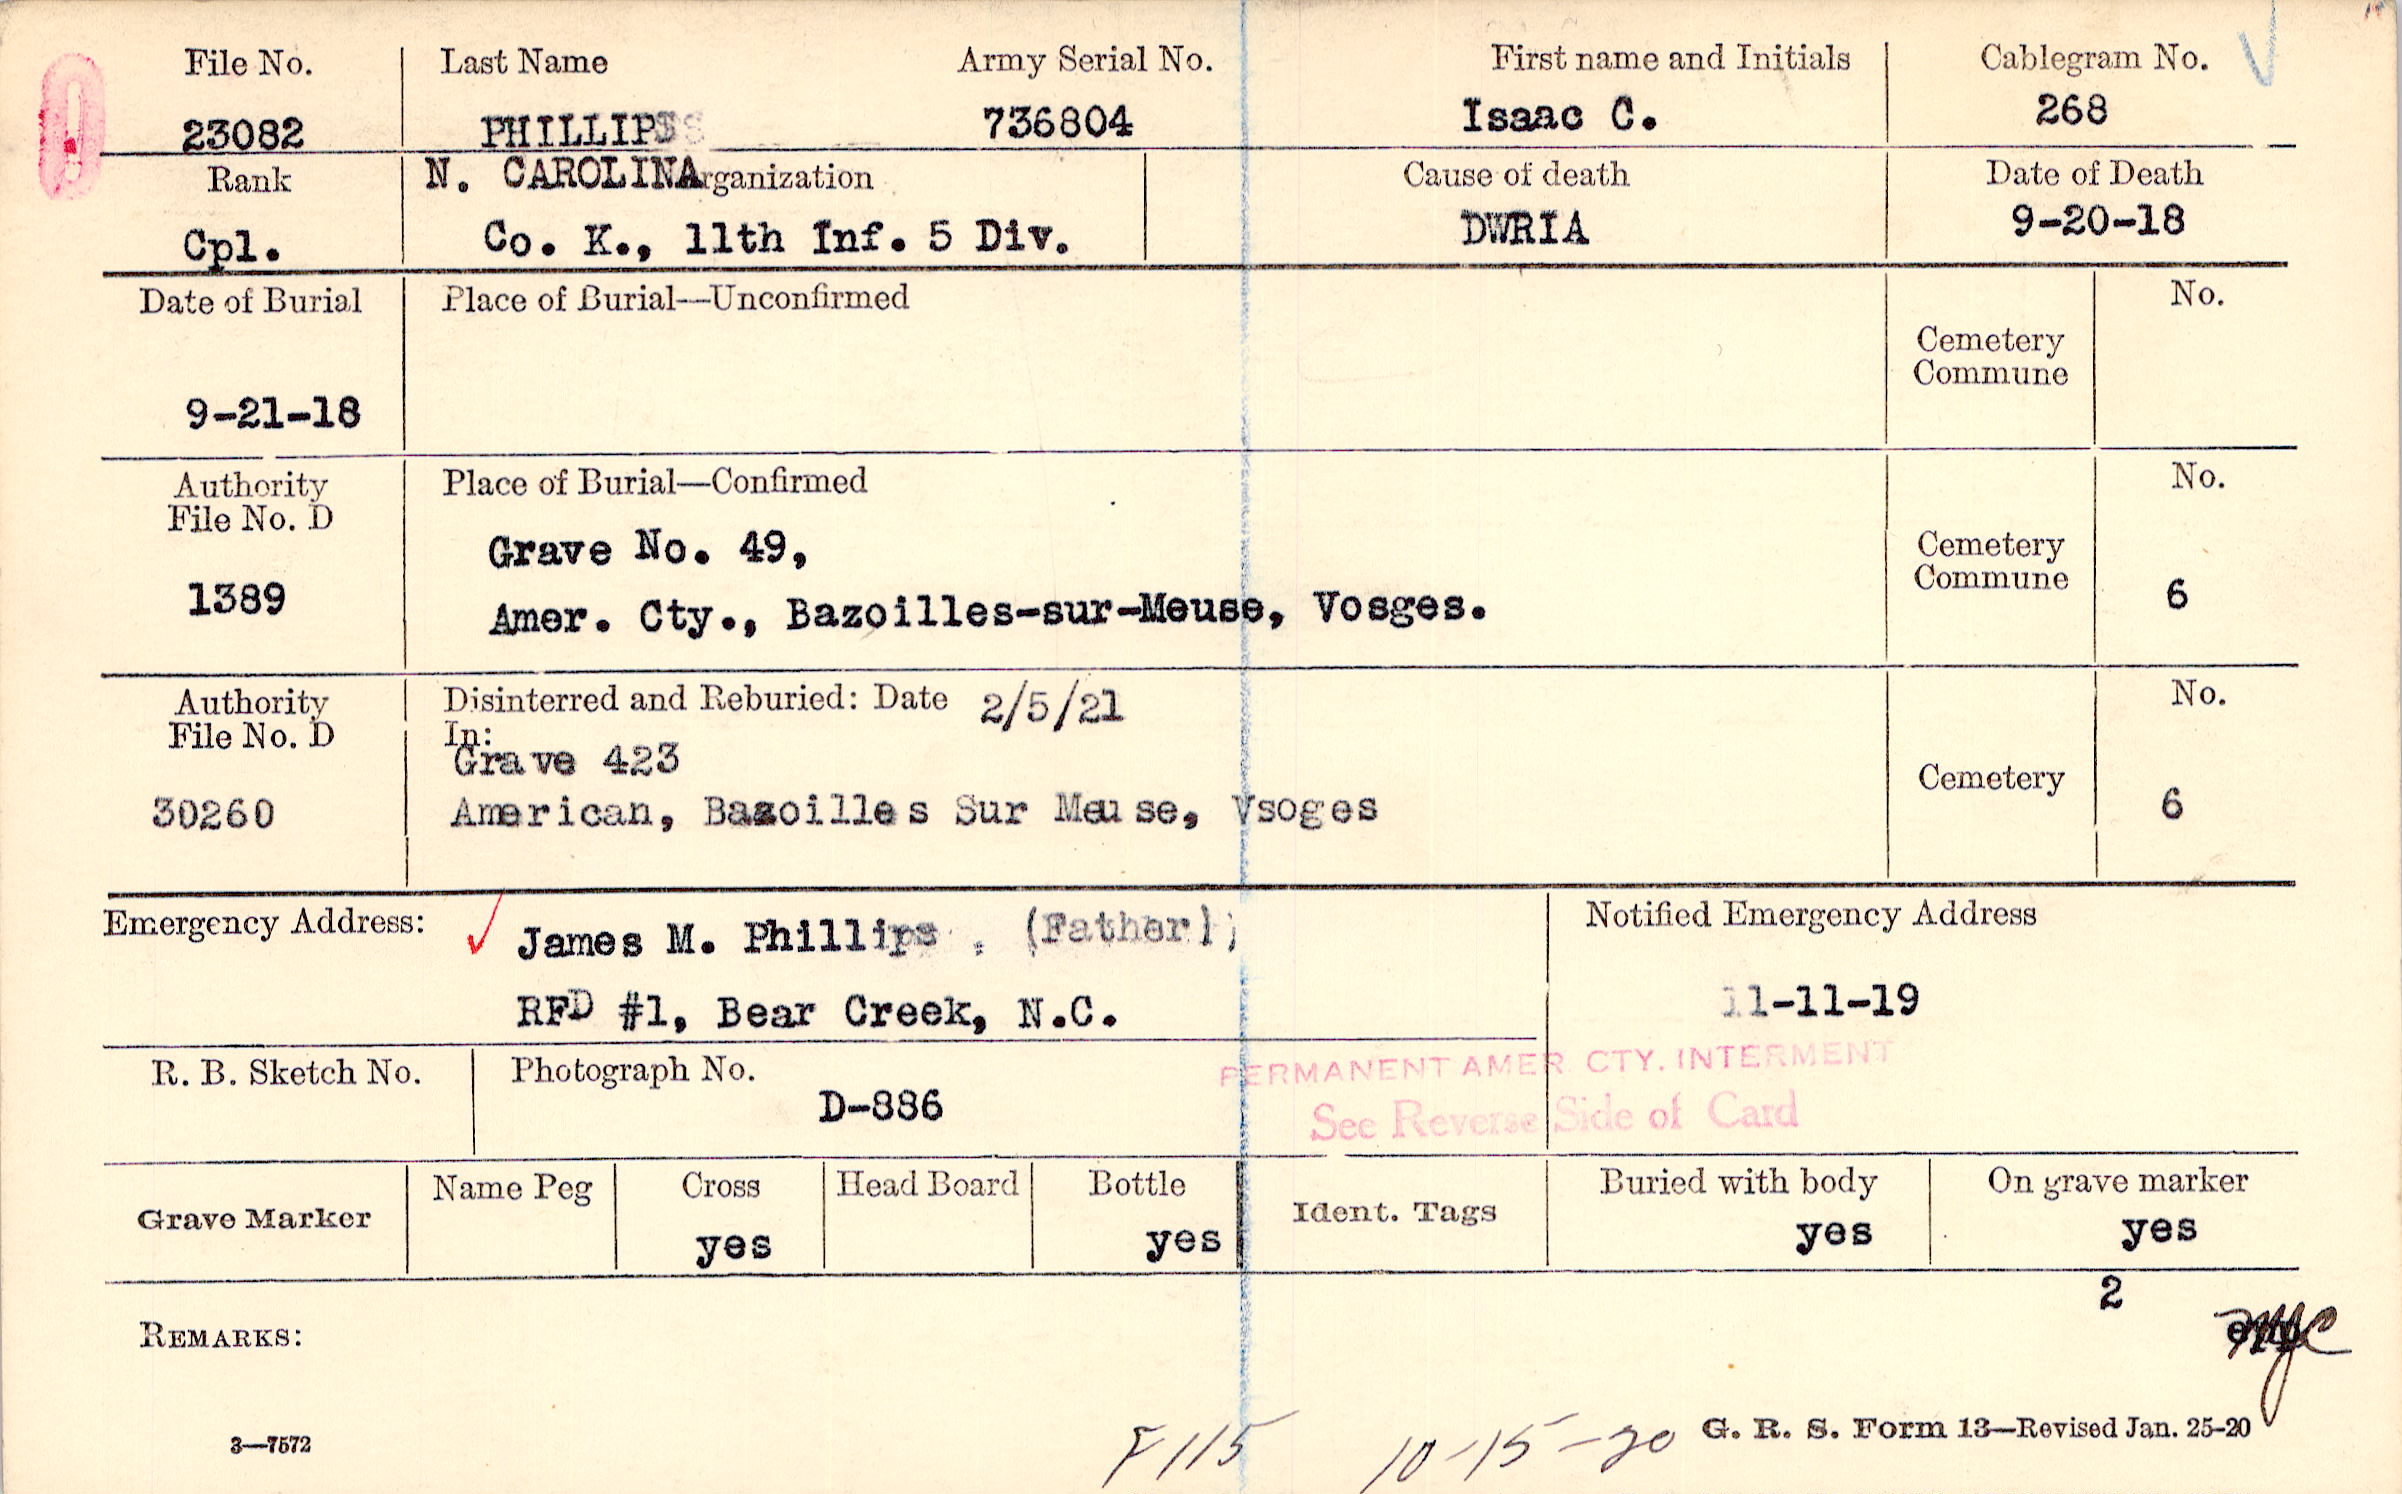 File No. Last Name Army Serial No. First name and Initials Cablegram No.
23082 PHILLIPS 736804 Isaac C. 268
Rank N. CAROLINA rganization Cause of death Date of Death
Cpl. Co. K., 11th Inf. 5 Div. DWRIA 9-20-18
Date of Burial Place of Burial—Unconfirmed No.
Cemetery
Commune
9-21-18
Authority Place of Burial—Confirmed No.
File No. D
Grave No. 49, Cemetery
Commune
1389 Amer. Cty., Bazoilles-sur-Meuse, Vosges. 6
Authority Disinterred and Reburied: Date 2/5/21 No.
File No. D In:
Grave 423 Cemetery
30260 American, Bazoilles Sur Meuse, Vsoges 6
Emergency Address: James M. Phillips, (Father); Notified Emergency Address
RFD #1, Bear Creek, N.C. 11-11-19
R. B. Sketch No. Photograph No. PERMANENT AMER. CTY. INTERMENT
D-886 See Reverse Side of Card
Grave Marker Name Peg Cross Head Board Bottle Ident. Tags Buried with body On grave marker
yes yes yes yes
2
REMARKS:
3—7572 F115 10-15-20 G. R. S. Form 13—Revised Jan. 25-20